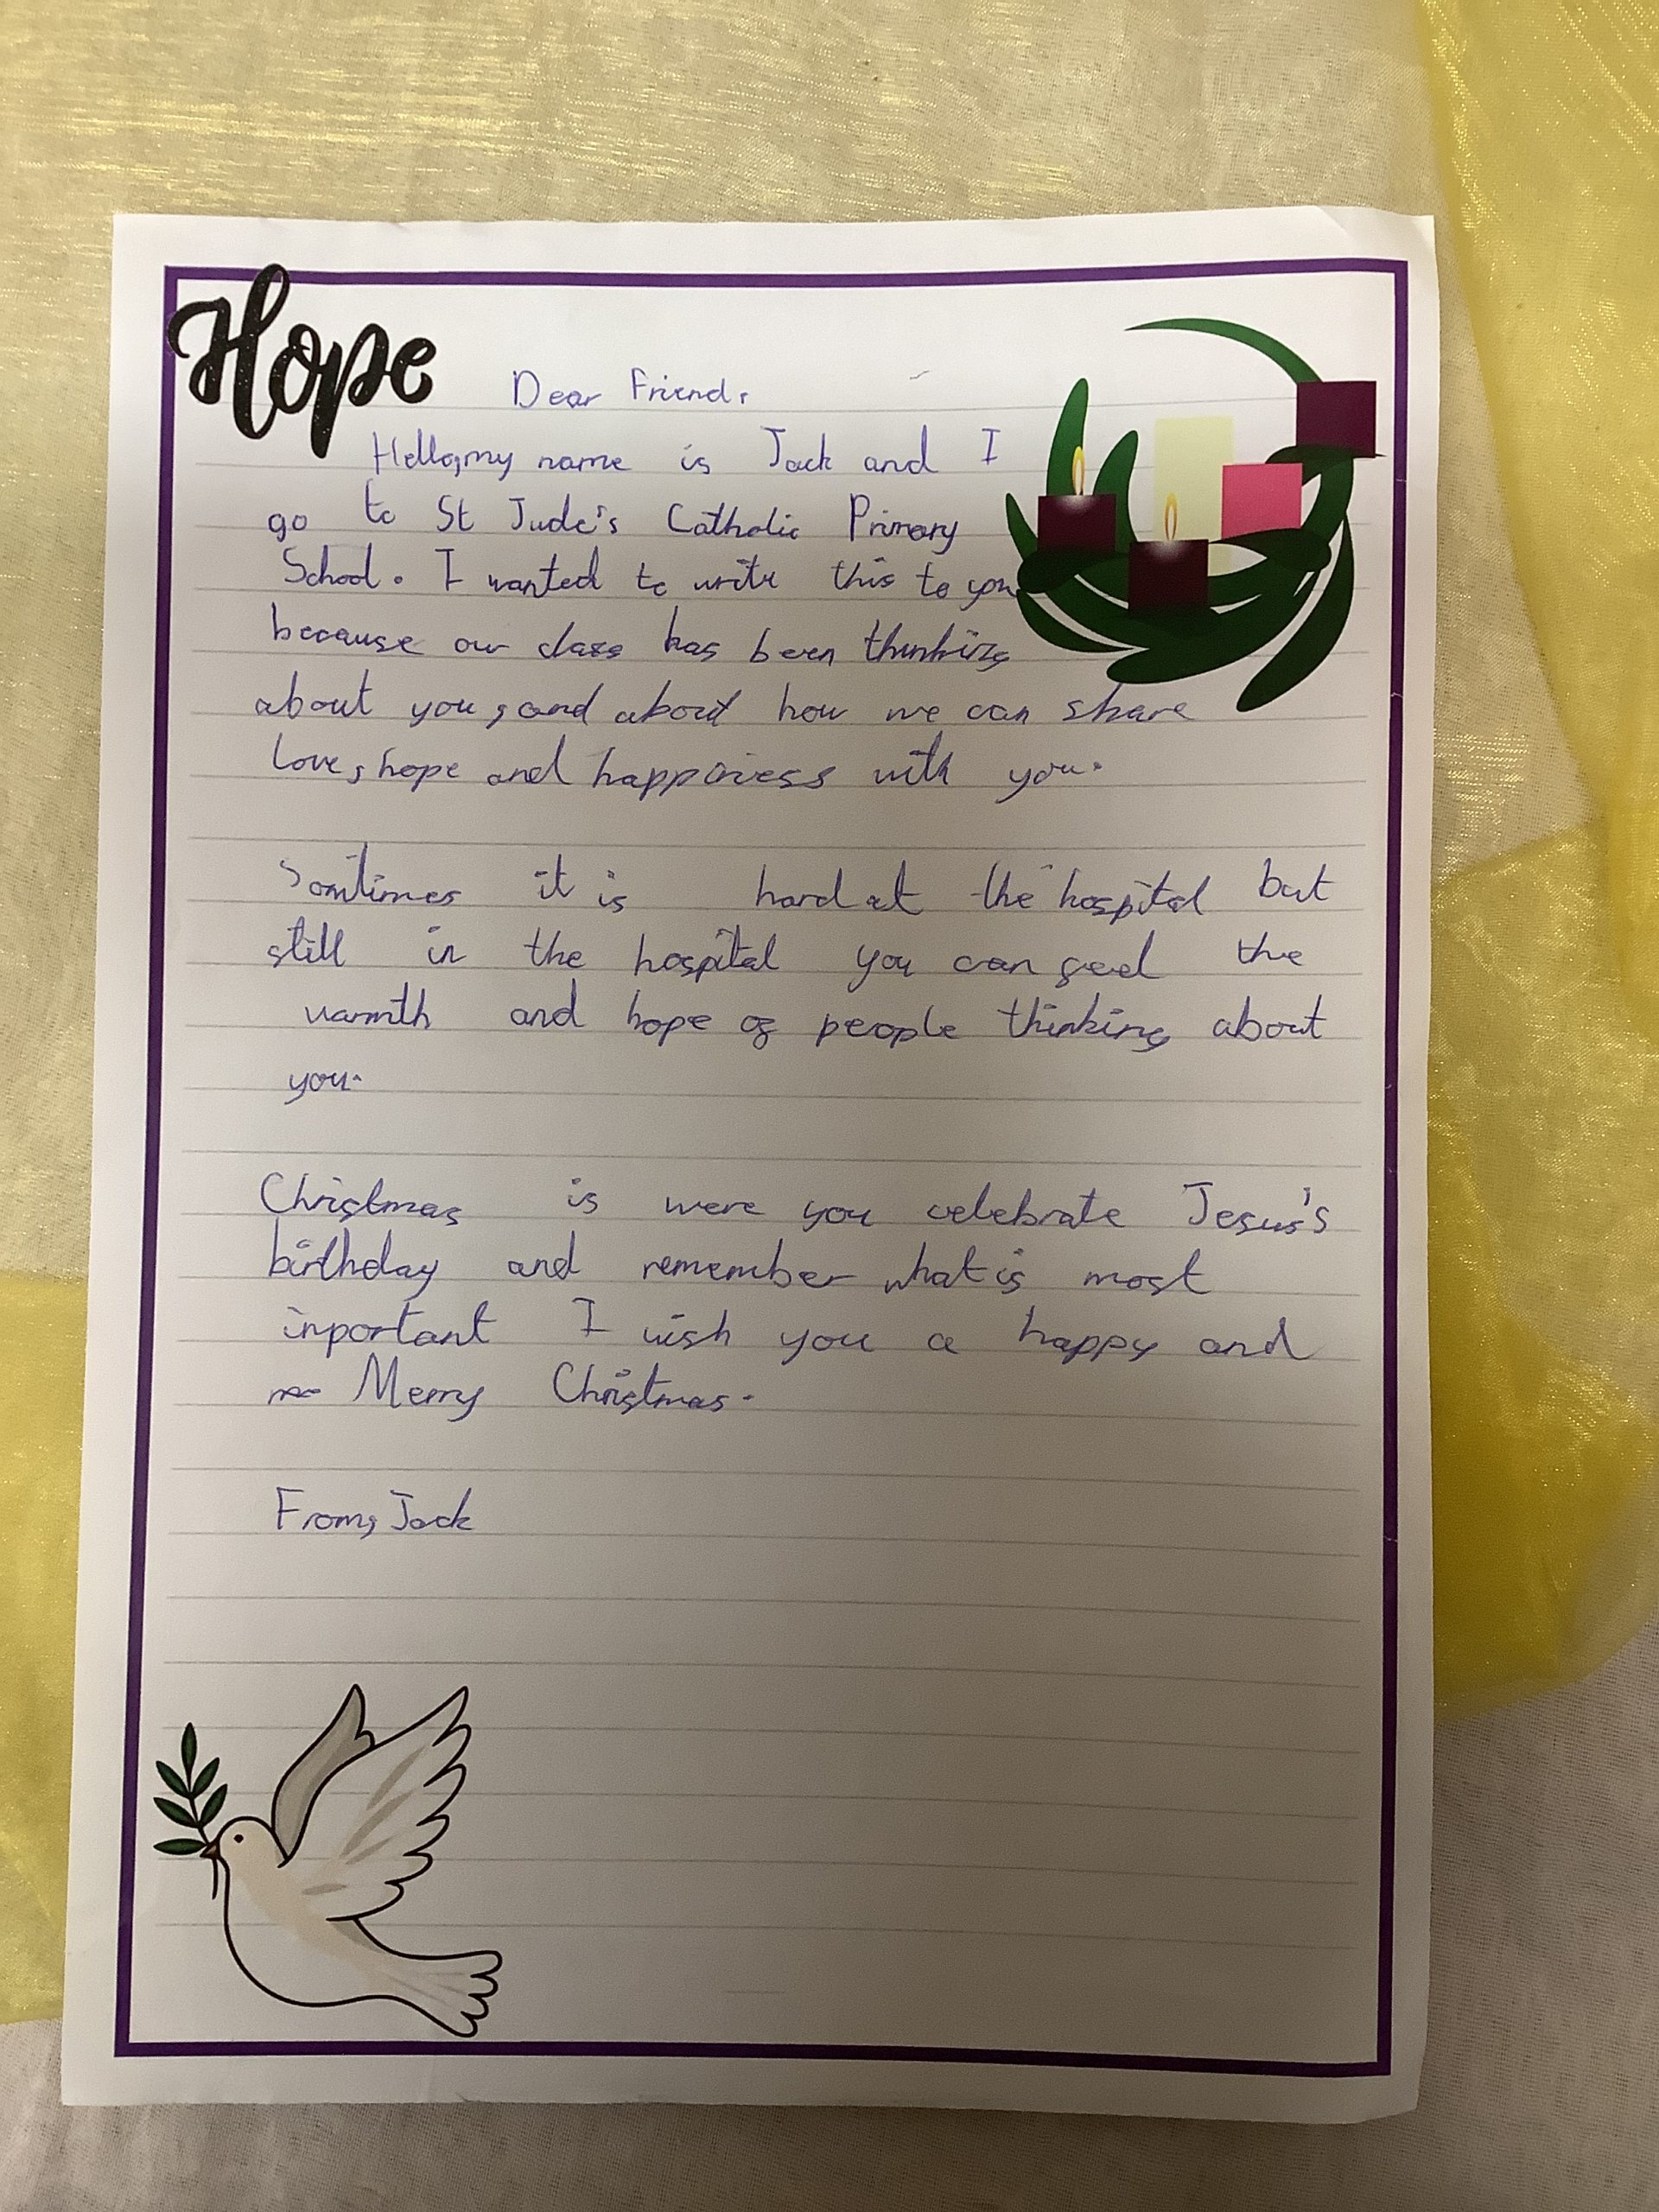 Hope
Dear Friend,
Hello, my name is Jack and I
go to St Jude's Catholic Primary
School. I wanted to write this to you
because our class has been thinking
about you, and about how we can share
love, hope and happiness with you.
Somtimes it is hard at the hospital but
still in the hospital you can feel the
warmth and hope of people thinking about
you.
Christmas is were you celebrate Jesus's
birthday and remember what is most
inportant I wish you a happy and
Merry Christmas.
From, Jack